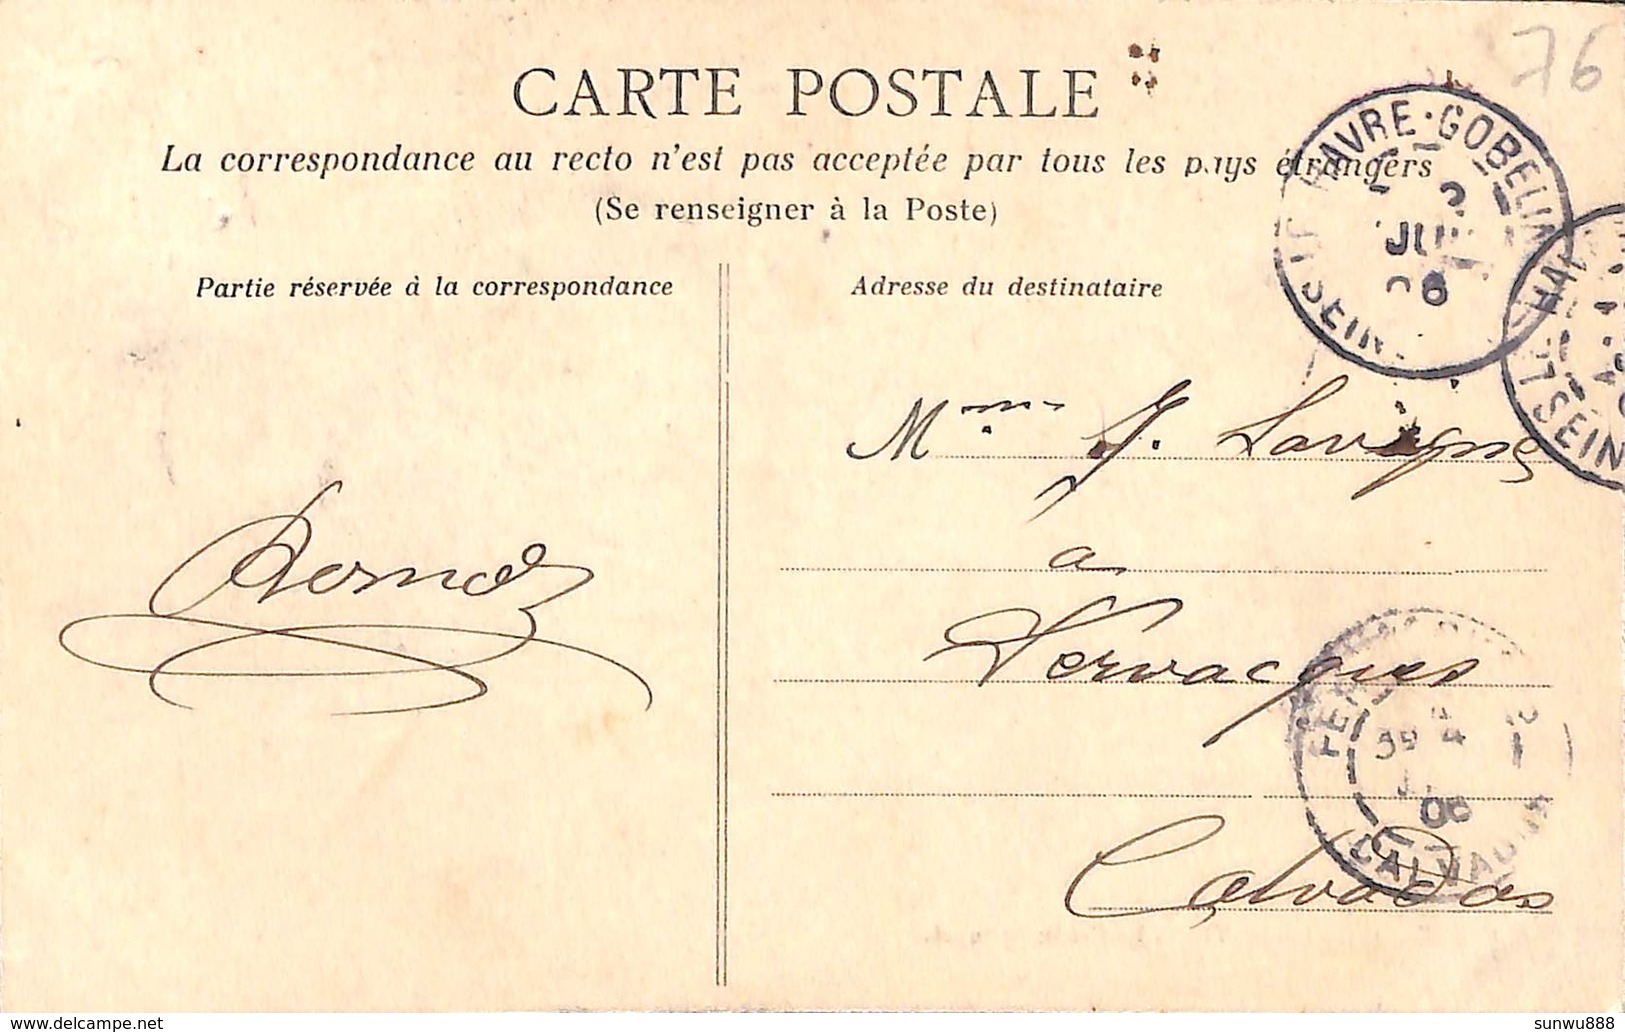 76
CARTE POSTALE
La correspondance au recto n'est pas acceptée par tous les pays étrangers
(Se renseigner à la Poste)
Partie réservée à la correspondance
Adresse du destinataire
LE HAVRE · GOBELINS
2
JUIL
06
(SEINE
LE HAVRE
(SEINE
Mme J. Lavigne
a
Vervacques
Calvados
4
06
(CALVADOS)
delcampe.net
sunwu888